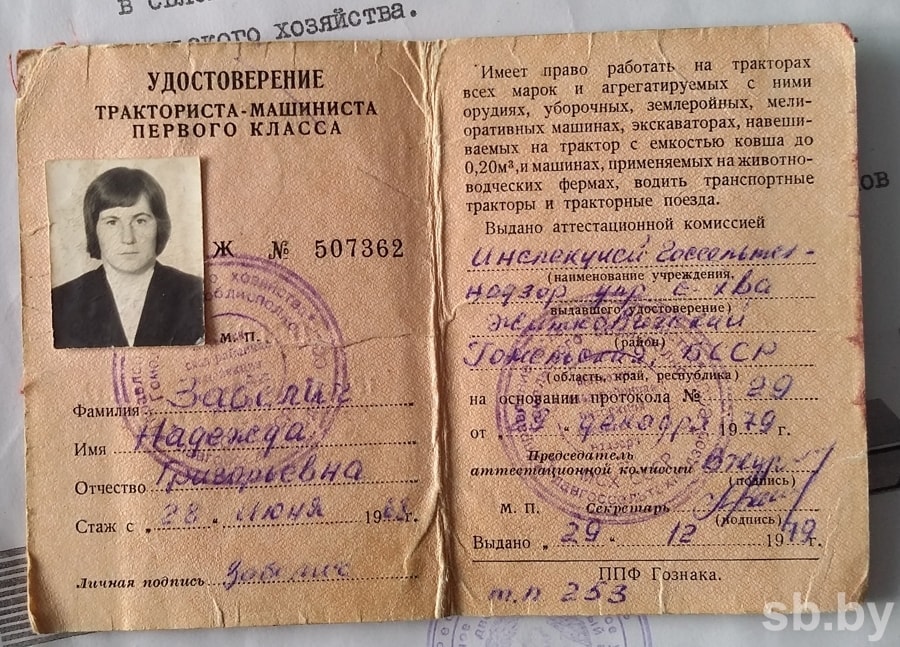 в сель
ского хозяйства.
УДОСТОВЕРЕНИЕ
ТРАКТОРИСТА-МАШИНИСТА
ПЕРВОГО КЛАССА
Ж № 507362
М. П.
Фамилия Забелич
Имя Надежда
Отчество Григорьевна
Стаж с „28“ июня 1963г.
Личная подпись Забелич
Имеет право работать на тракторах
всех марок и агрегатируемых с ними
орудиях, уборочных, землеройных, мели-
оративных машинах, экскаваторах, навеши-
ваемых на трактор с емкостью ковша до
0,20м³, и машинах, применяемых на животно-
водческих фермах, водить транспортные
тракторы и тракторные поезда.
Выдано аттестационной комиссией
Инспекцией Госсельтех-
(наименование учреждения,
надзор упр. с-хва
выдавшего удостоверение)
Житковичский
(район)
Гомельский, БССР
(область, край, республика)
на основании протокола № 29
от „29“ декабря 1979 г.
Председатель
аттестационной комиссии
(подпись)
М. П. Секретарь
(подпись)
Выдано „29“ 12 1979г.
ППФ Гознака.
т.п 253
ов
sb.by